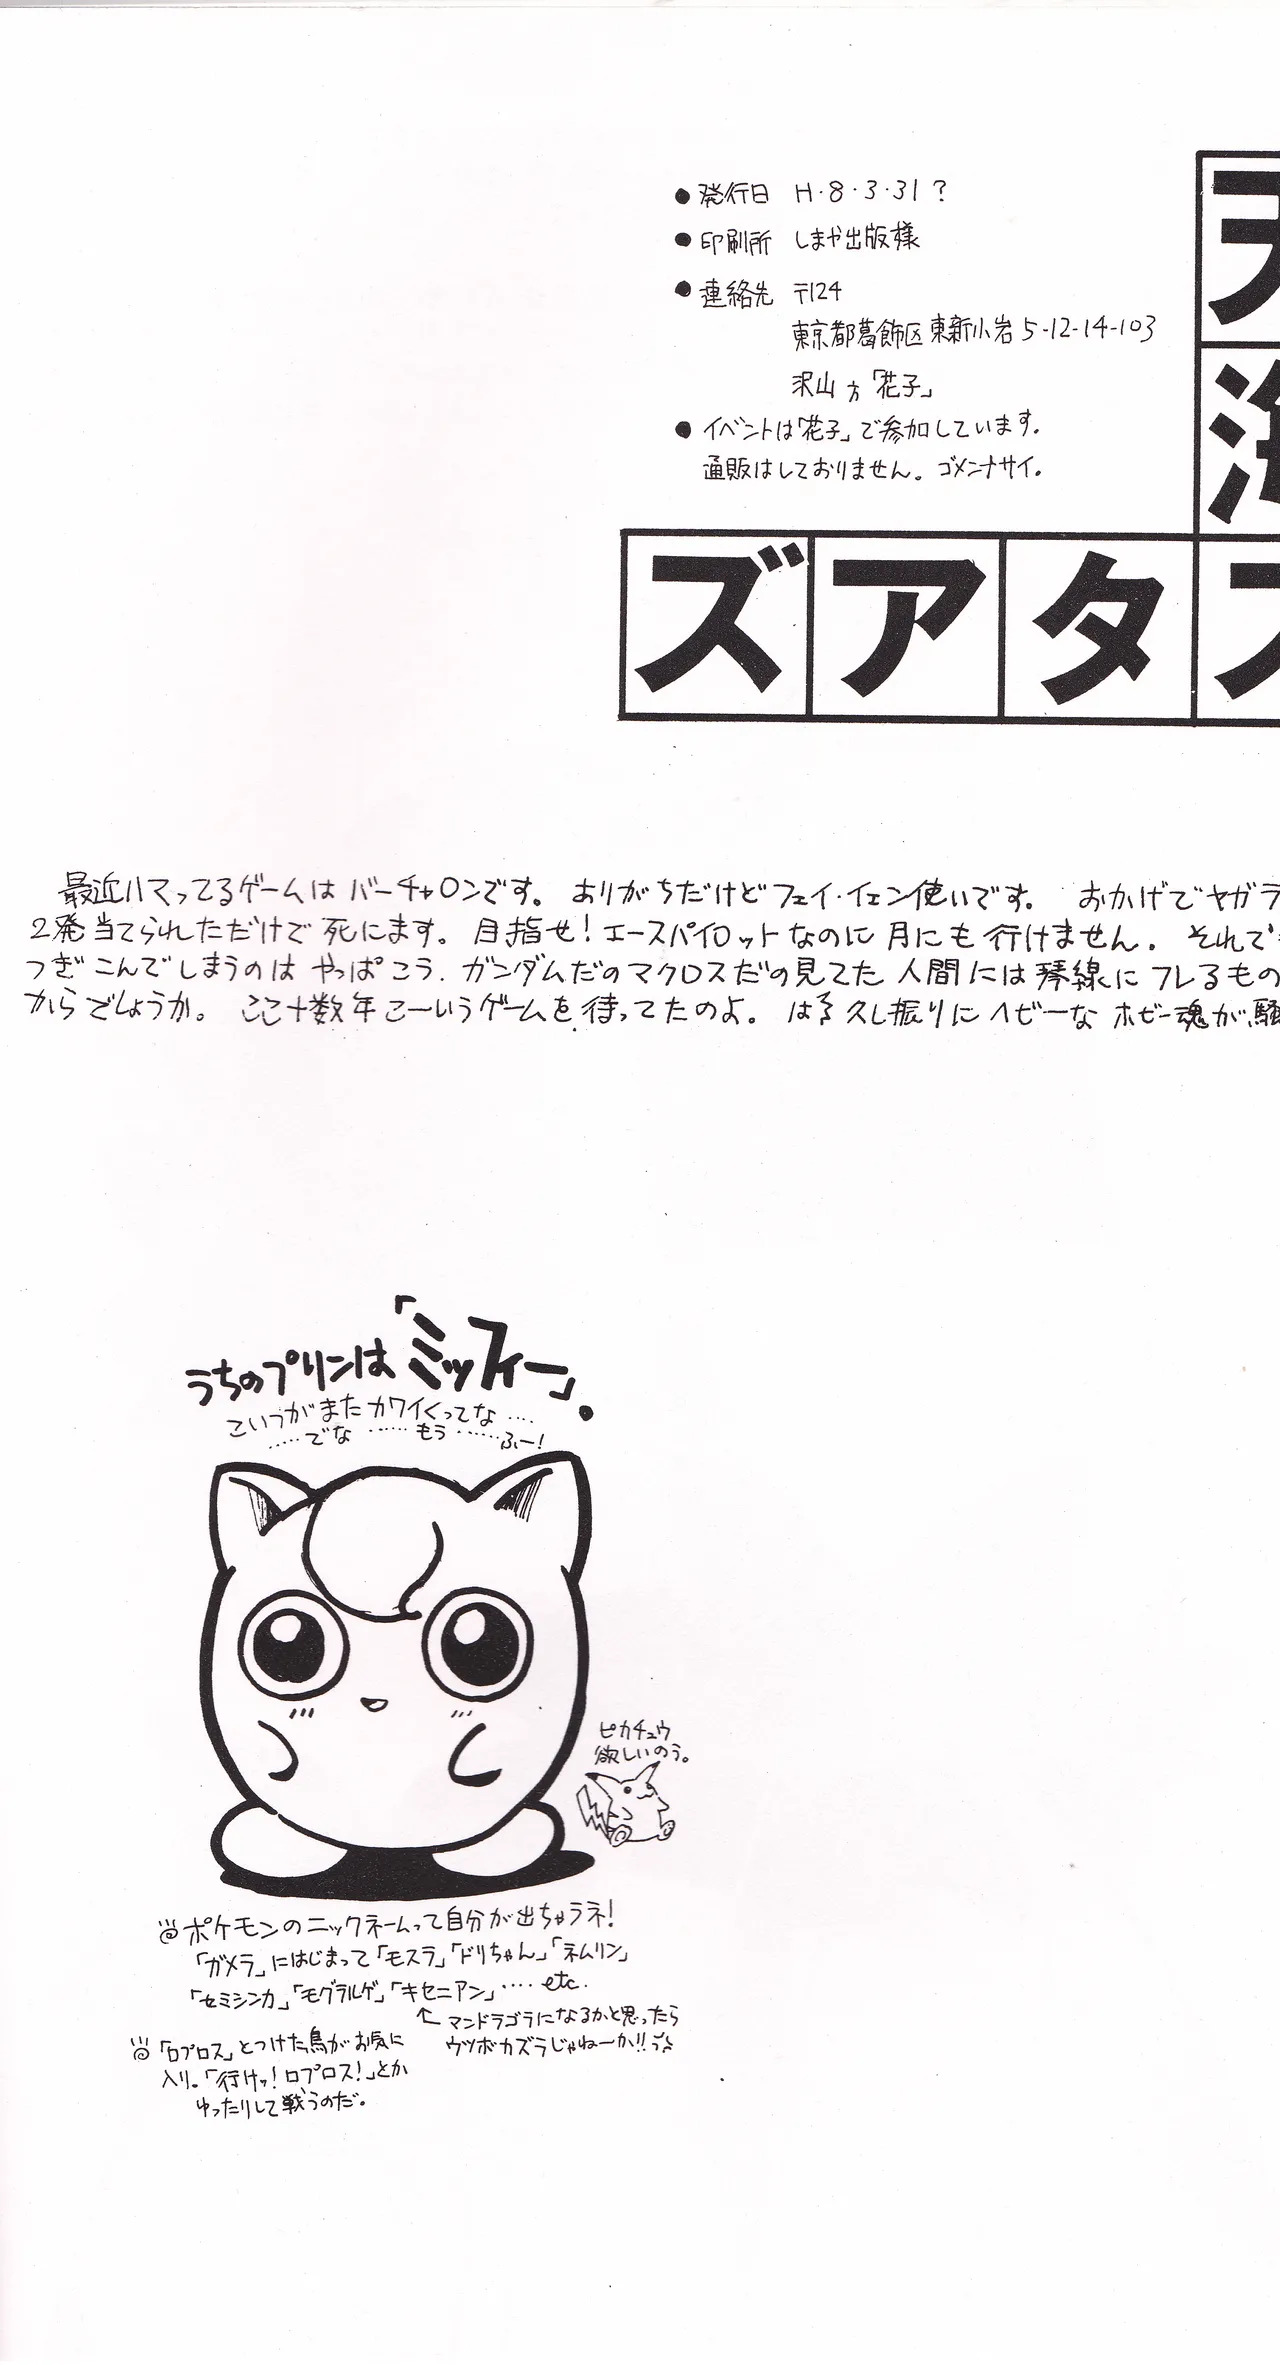 ●発行日 H・8・3・31？
●印刷所 しまや出版様
●連絡先 〒124
東京都葛飾区東新小岩5-12-14-103
沢山方「花子」
●イベントは「花子」で参加しています。
通販はしておりません。ゴメンナサイ。
天
海
ズアタス
最近ハマってるゲームはバーチャロンです。ありがちだけどフェイ・イェン使いです。 おかげでヤガラ
2発当てられただけで死にます。目指せ！エースパイロットなのに月にも行けません。それで
つぎこんでしまうのはやっぱこう、ガンダムだのマクロスだの見てた人間には琴線にフレるもの
からでしょうか。ここ十数年こーいうゲームを待ってたのよ。はう久し振りにヘビーなホビー魂が騒
うちのプリンは「ミッフィー」。
こいつがまたカワイくってな……
……でな……もう……ふー！
ピカチュウ
欲しいのう。
ポケモンのニックネームって自分が出ちゃうネ！
「ガメラ」にはじまって「モスラ」「ドリちゃん」「ネムリン」
「セミシンカ」「モグラルゲ」「キセニアン」……etc.
←マンドラゴラになるかと思ったら
ウツボカズラじゃねーか!!
「ロプロス」とつけた鳥がお気に
入り。「行けッ！ロプロス！」とか
ゆったりして戦うのだ。